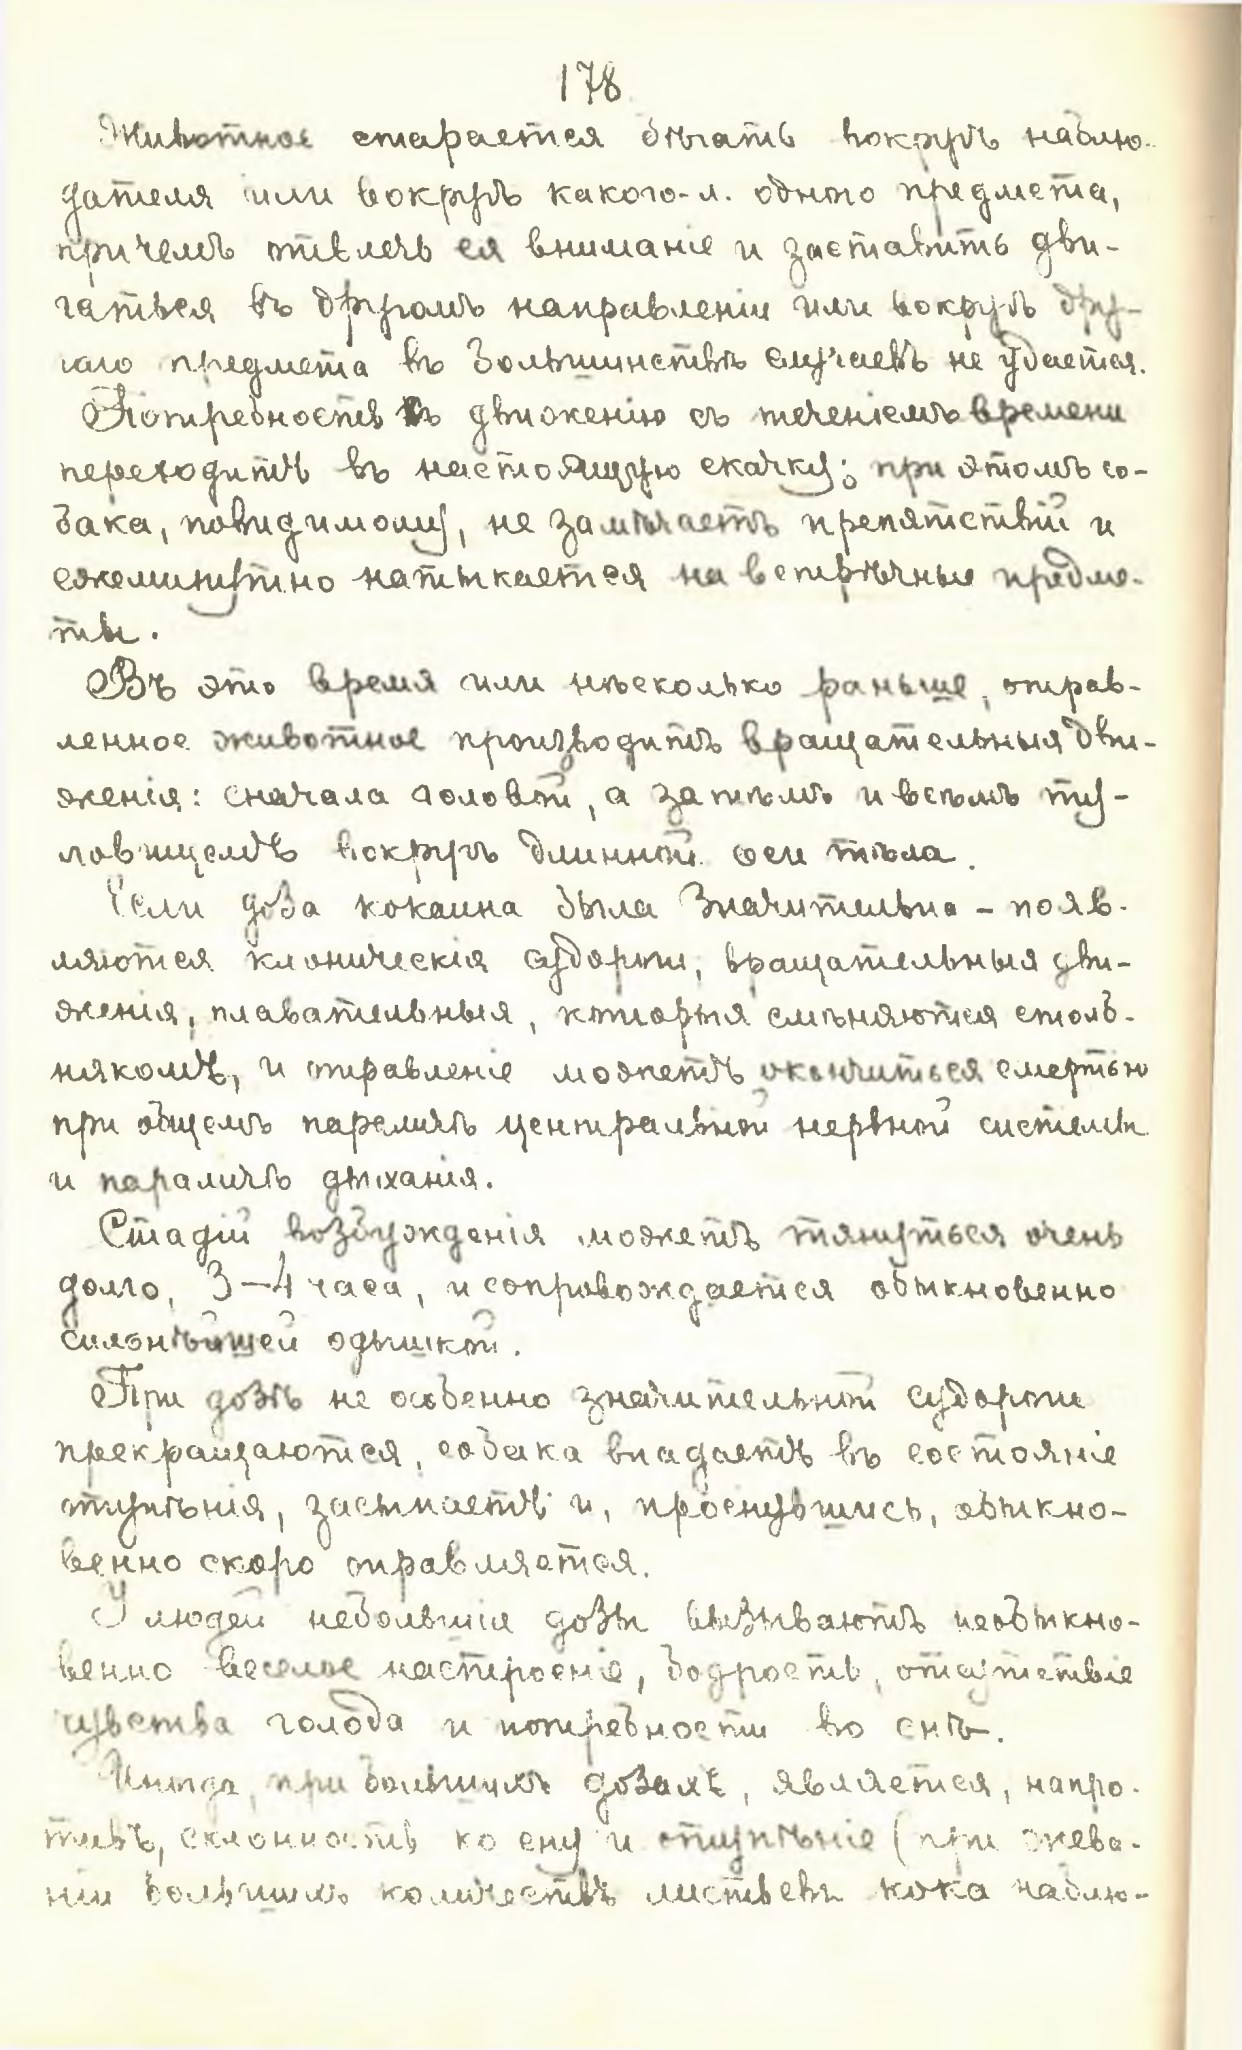 178
Животное старается бѣгать вокругъ наблю-
дателя или вокругъ какого-л. одного предмета,
причемъ отвлечь ея вниманіе и заставить дви-
гаться въ другомъ направленіи или вокругъ дру-
гого предмета въ большинствѣ случаевъ не удается.
Потребность къ движенію съ теченіемъ времени
переходитъ въ настоящую скачку; при этомъ со-
бака, повидимому, не замѣчаетъ препятствій и
ежеминутно натыкается на встрѣчные предме-
ты.
Въ это время или нѣсколько раньше, отрав-
ленное животное производитъ вращательныя дви-
женія: сначала головой, а затѣмъ и всѣмъ ту-
ловищемъ вокругъ длинной оси тѣла.
Если доза кокаина была значительна – появ-
ляются клоническія судороги, вращательныя дви-
женія, плавательныя, которыя смѣняются столб-
някомъ, и отравленіе можетъ окончиться смертью
при общемъ параличѣ центральной нервной системы
и параличѣ дыханія.
Стадій возбужденія можетъ тянуться очень
долго, 3–4 часа, и сопровождается обыкновенно
сильнѣйшей одышкой.
При дозѣ не особенно значительной судороги
прекращаются, собака впадаетъ въ состояніе
отупѣнія, засыпаетъ и, проснувшись, обыкно-
венно скоро оправляется.
У людей небольшія дозы вызываютъ необыкно-
венно веселое настроеніе, бодрость, отсутствіе
чувства голода и потребности во снѣ.
Иногда, при большихъ дозахъ, является, напро-
тивъ, склонность ко сну и отупѣніе (при жева-
ніи большихъ количествъ листьевъ кока наблю-